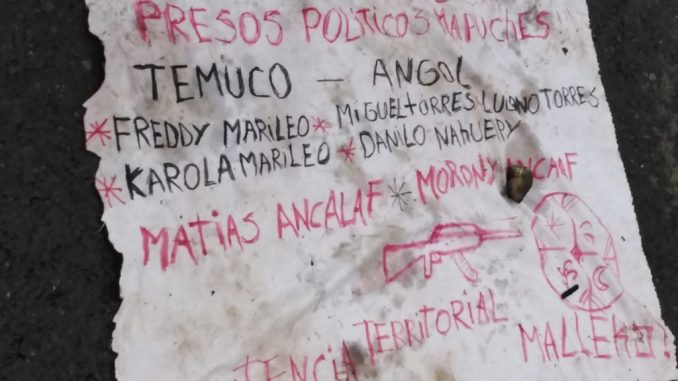 PRESOS POLITICOS MAPUCHES
TEMUCO - ANGOL
* FREDDY MARILEO * MIGUEL TORRES LUCIANO TORRES
* KAROLA MARILEO * DANILO NAHUEPY
MATIAS ANCALAF * MORONY ANCALAF
TERRITORIAL
MALLEKO!